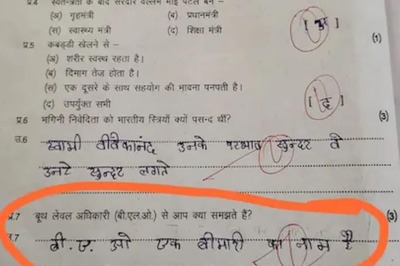 प्र.4 स्वतन्त्रता के बाद सरदार वल्लभ भाई पटेल बने –
(अ) गृहमंत्री (ब) प्रधानमंत्री
(स) स्वास्थ्य मंत्री (द) शिक्षा मंत्री
[ अ ] (1)
प्र.5 कबड्डी खेलने से –
(अ) शरीर स्वस्थ रहता है।
(ब) दिमाग तेज होता है।
(स) एक दूसरे के साथ सहयोग की भावना पनपती है।
(द) उपर्युक्त सभी [ द ]
प्र.6 भगिनी निवेदिता को भारतीय स्त्रियाँ क्यों पसन्द थीं? (3)
उ.6 स्वामी विवेकानंद उनके सुन्दर वे
उनटे सुन्दर लगते
प्र.7 बूथ लेवल अधिकारी (बी.एल.ओ.) से आप क्या समझते हैं? (3)
उ.7 बी. एल. ओ एक बीमारी का नाम है